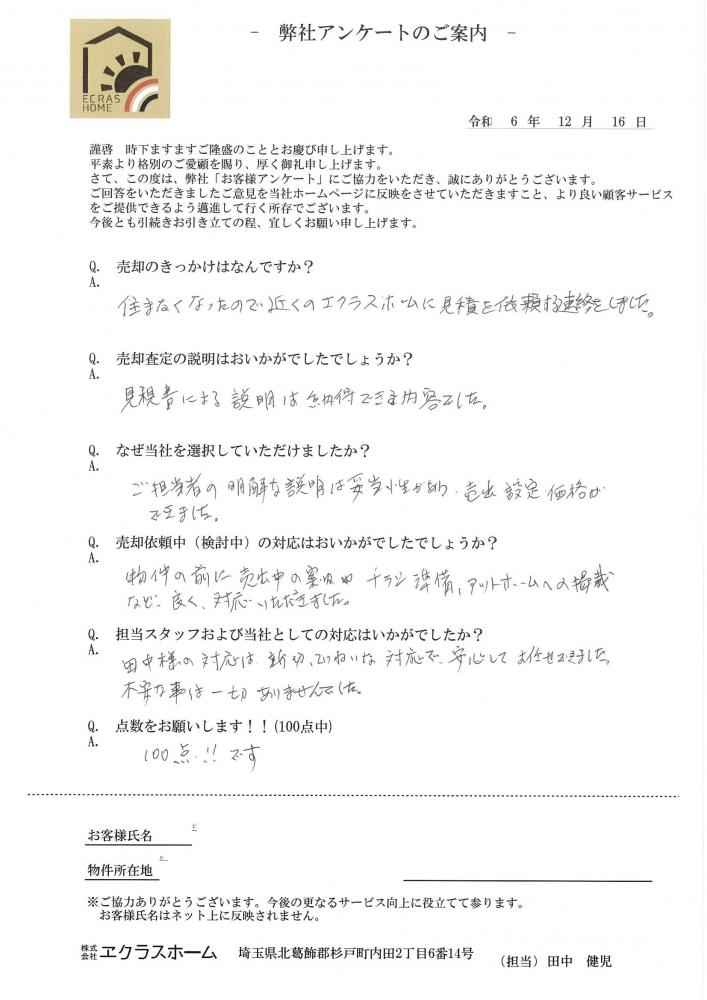 - 弊社アンケートのご案内 -
ECRAS
HOME
令和 6 年 12 月 16 日
謹啓 時下ますますご隆盛のこととお慶び申し上げます。
平素より格別のご愛顧を賜り、厚く御礼申し上げます。
さて、この度は、弊社「お客様アンケート」にご協力をいただき、誠にありがとうございます。
ご回答をいただきましたご意見を当社ホームページに反映をさせていただきますこと、より良い顧客サービス
をご提供できるよう邁進して行く所存でございます。
今後とも引続きお引き立ての程、宜しくお願い申し上げます。
Q. 売却のきっかけはなんですか？
A.
住まなくなったので近くのエクラスホームに見積を依頼する連絡をしました。
Q. 売却査定の説明はおいかがでしたでしょうか？
A.
による説明は納得できる内容でした。
Q. なぜ当社を選択していただけましたか？
A.
ご担当者の明解な説明は妥当性があり、売出設定価格が
できました。
Q. 売却依頼中（検討中）の対応はおいかがでしたでしょうか？
A.
物件の前に売出中の案内やチラシ準備,アットホームへの掲載
など、良く、対応いただきました。
Q. 担当スタッフおよび当社としての対応はいかがでしたか？
A.
田中様の対応は、親切、ていねいな対応で、安心してお任せできました。
不安な事は一切ありませんでした。
Q. 点数をお願いします！！(100点中)
A.
100点!!です
お客様氏名
物件所在地
※ご協力ありがとうございます。今後の更なるサービス向上に役立てて参ります。
お客様氏名はネット上に反映されません。
株式会社 ヱクラスホーム 埼玉県北葛飾郡杉戸町内田2丁目6番14号 （担当）田中 健児